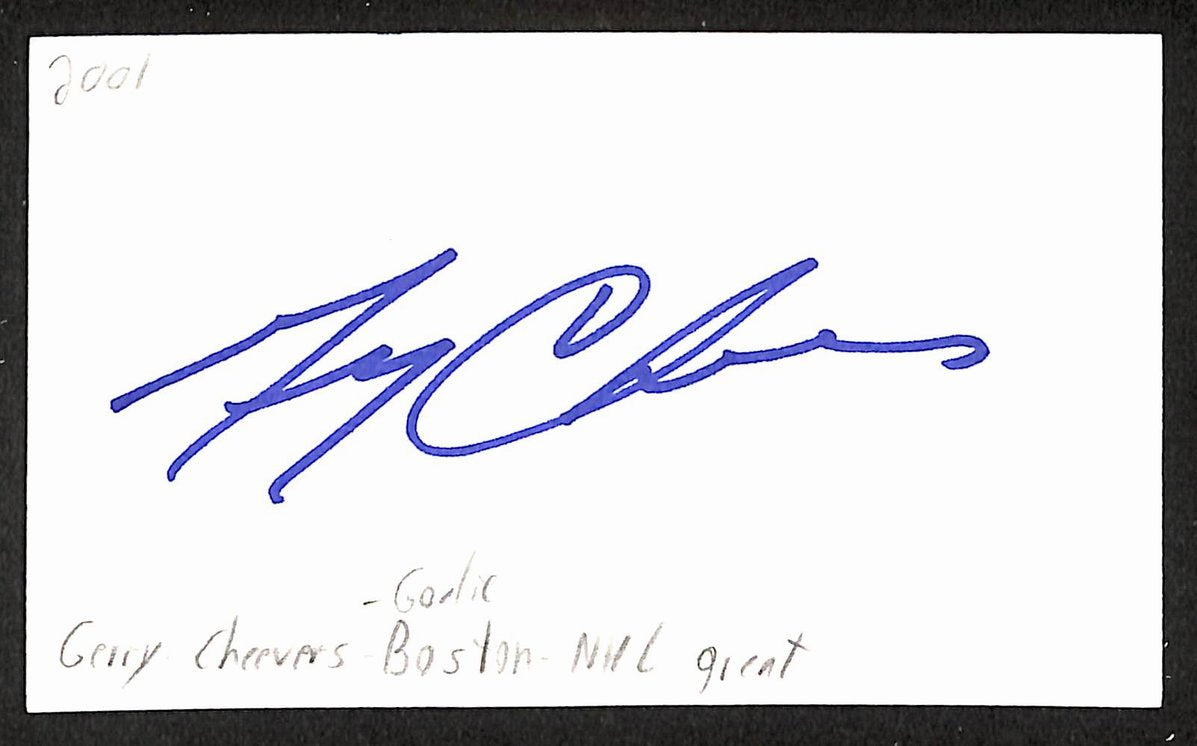 2001
Gerry Cheevers
- Goalie
Gerry Cheevers - Boston - NHL great